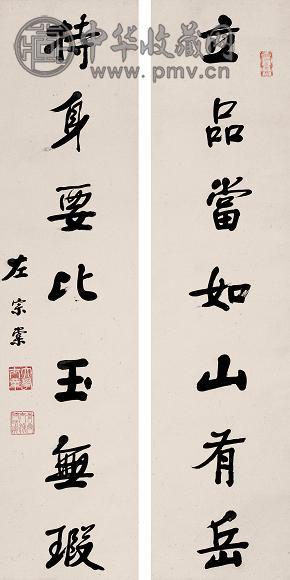 中华收藏网
www.pmv.cn
立品當如山有岳
持身要比玉無瑕
左宗棠